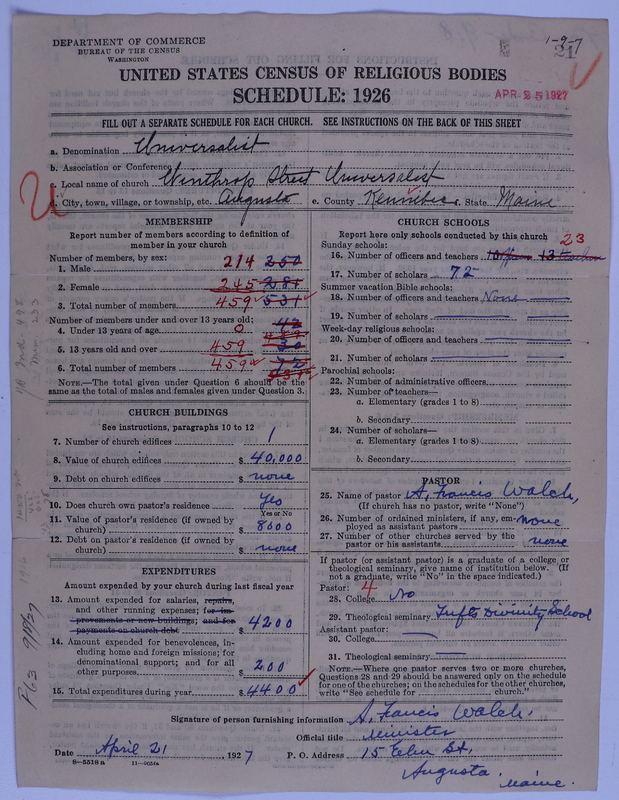 DEPARTMENT OF COMMERCE
BUREAU OF THE CENSUS
WASHINGTON
1-9-7
21
UNITED STATES CENSUS OF RELIGIOUS BODIES
SCHEDULE: 1926
APR 25 1927
FILL OUT A SEPARATE SCHEDULE FOR EACH CHURCH. SEE INSTRUCTIONS ON THE BACK OF THIS SHEET
a. Denomination Universalist
b. Association or Conference
c. Local name of church Winthrop Street Universalist
d. City, town, village, or township, etc. Augusta e. County Kennebec State Maine
MEMBERSHIP
Report number of members according to definition of member in your church
Number of members, by sex:
1. Male 214 250
2. Female 245 281
3. Total number of members 459 531
Number of members under and over 13 years old:
4. Under 13 years of age 0
5. 13 years old and over 459
6. Total number of members 459
NOTE.—The total given under Question 6 should be the same as the total of males and females given under Question 3.
CHURCH BUILDINGS
See instructions, paragraphs 10 to 12
7. Number of church edifices 1
8. Value of church edifices $ 40,000
9. Debt on church edifices $ none
10. Does church own pastor's residence? Yes
Yes or No
11. Value of pastor's residence (if owned by church) $ 8000
12. Debt on pastor's residence (if owned by church) $ none
EXPENDITURES
Amount expended by your church during last fiscal year
13. Amount expended for salaries, repairs, and other running expenses; for improvements or new buildings; and for payments on church debt $ 4200
14. Amount expended for benevolences, including home and foreign missions; for denominational support; and for all other purposes $ 200
15. Total expenditures during year $ 4400
CHURCH SCHOOLS
Report here only schools conducted by this church
Sunday schools: 23
16. Number of officers and teachers
17. Number of scholars 72
Summer vacation Bible schools:
18. Number of officers and teachers None
19. Number of scholars
Week-day religious schools:
20. Number of officers and teachers
21. Number of scholars
Parochial schools:
22. Number of administrative officers
23. Number of teachers—
a. Elementary (grades 1 to 8)
b. Secondary
24. Number of scholars—
a. Elementary (grades 1 to 8)
b. Secondary
PASTOR
25. Name of pastor A. Francis Walch,
(If church has no pastor, write "None")
26. Number of ordained ministers, if any, employed as assistant pastors none
27. Number of other churches served by the pastor or his assistants none
If pastor (or assistant pastor) is a graduate of a college or theological seminary, give name of institution below. (If not a graduate, write "No" in the space indicated.)
Pastor: 4
28. College No
29. Theological seminary Tufts Divinity School
Assistant pastor:
30. College
31. Theological seminary
NOTE.—Where one pastor serves two or more churches, Questions 28 and 29 should be answered only on the schedule for one of the churches; on the schedules for the other churches, write "See schedule for church."
Signature of person furnishing information A. Francis Walch,
Official title Minister
Date April 21, 1927 P. O. Address 15 Elm St.,
8—5518 a
Augusta, Maine.